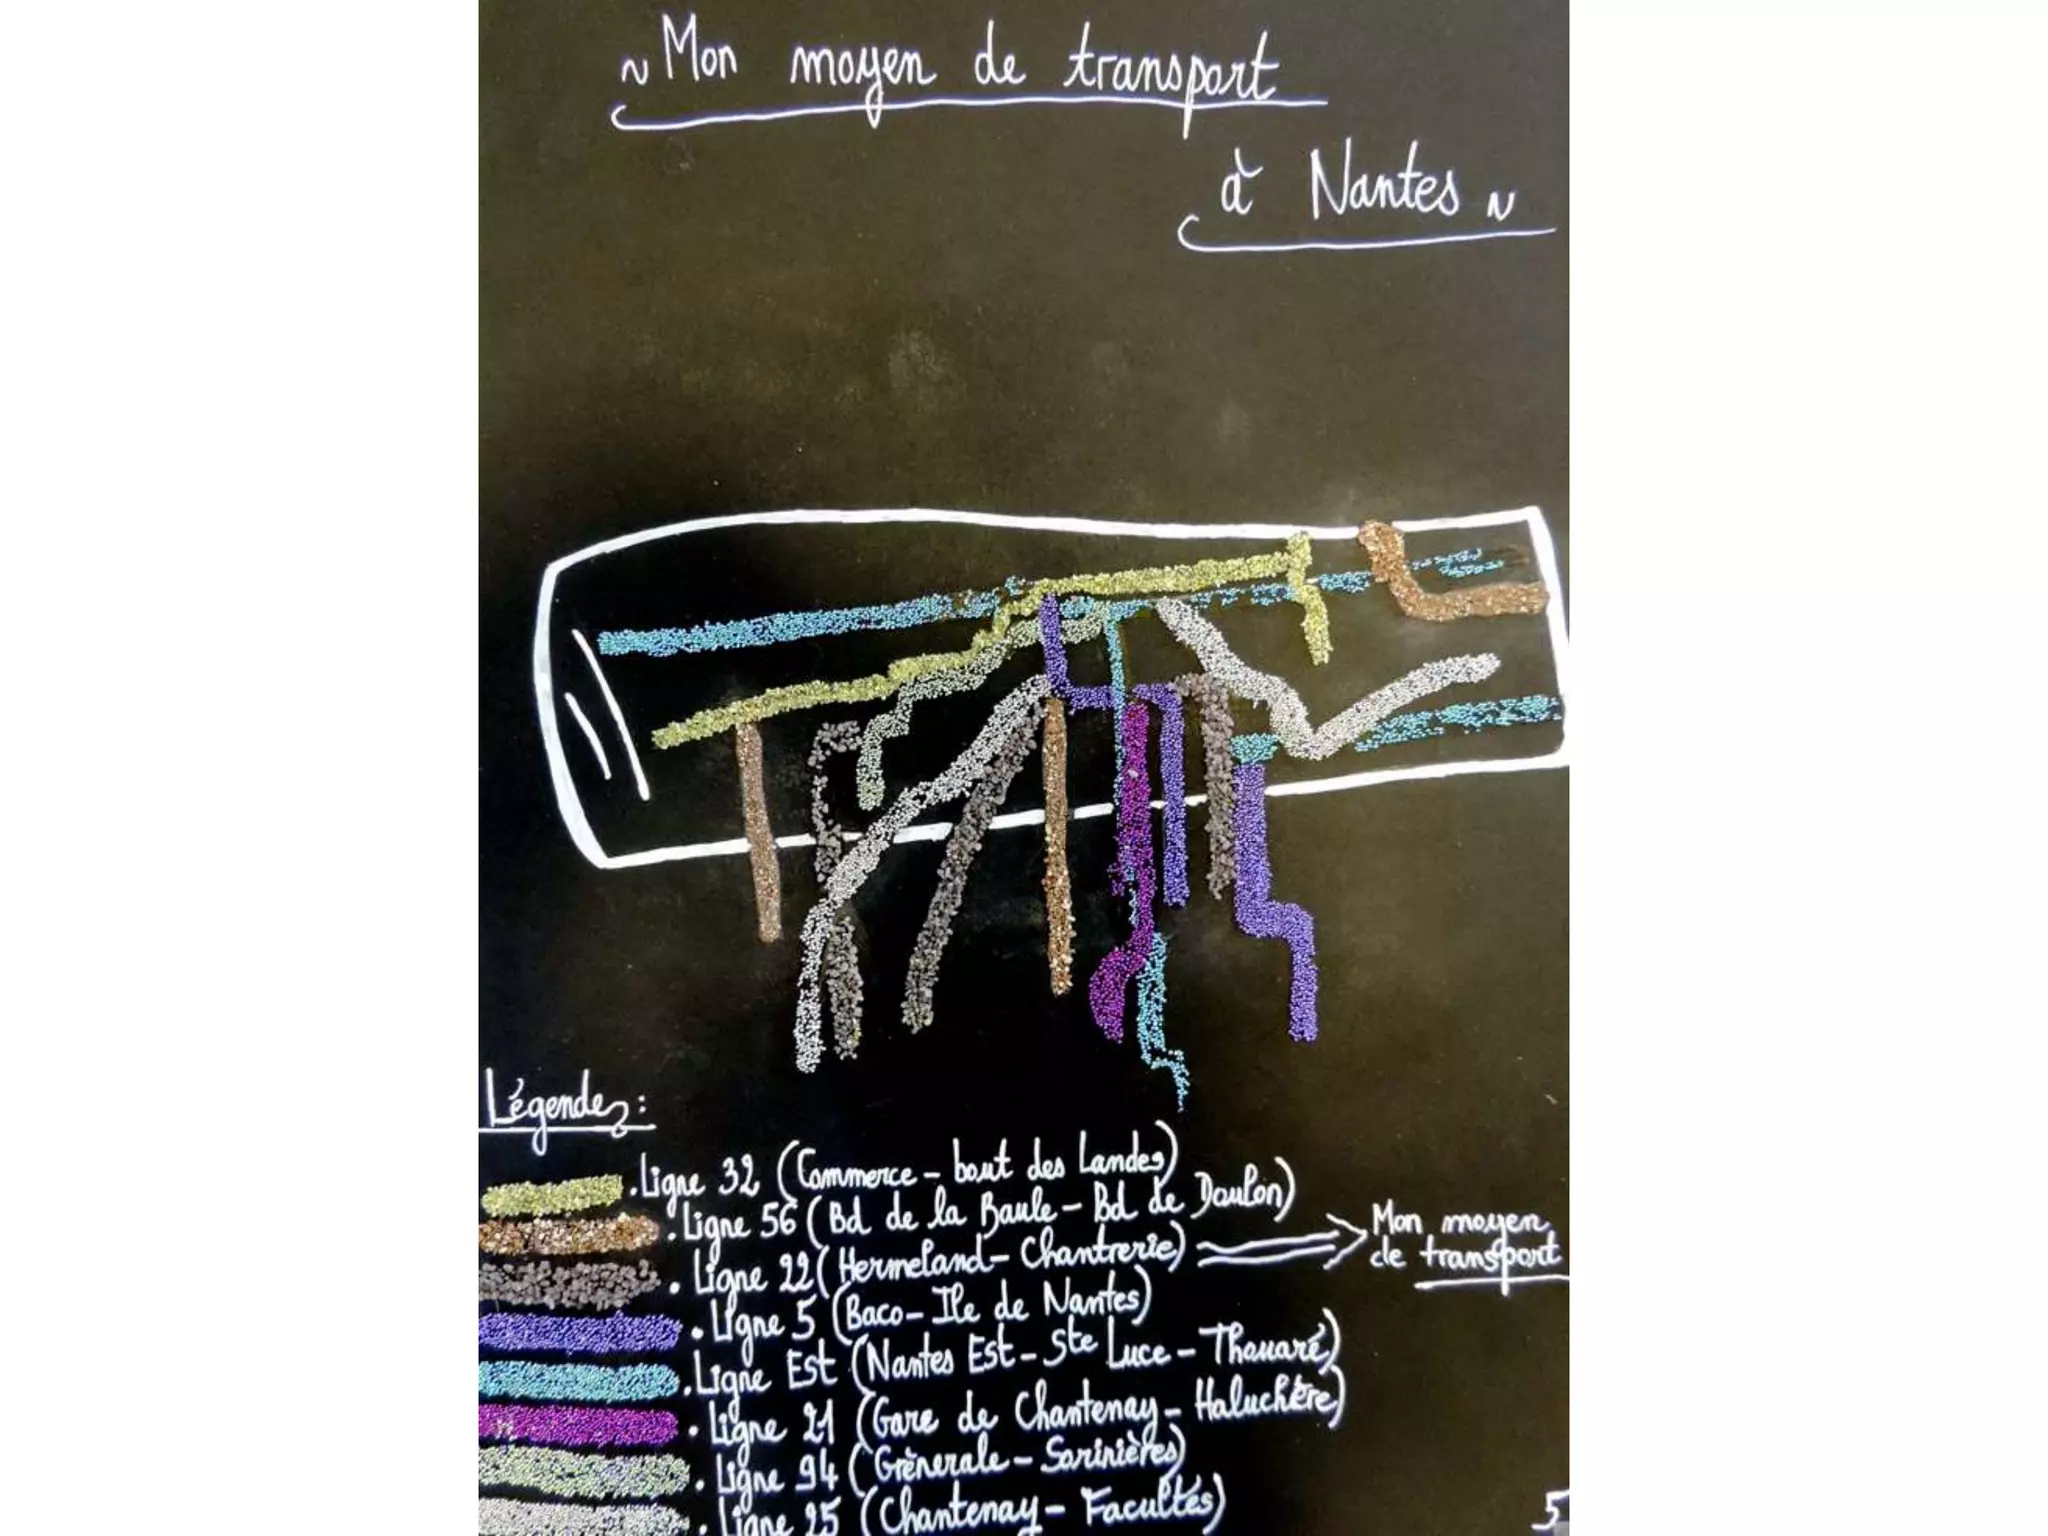 ~ Mon moyen de transport
à Nantes ~
Légende :
. Ligne 32 (Commerce - bout des Landes)
. Ligne 56 (Bd de la Baule - Bd de Doulon)
. Ligne 22 (Hermeland - Chantrerie) ⇒ Mon moyen
de transport
. Ligne 5 (Baco - Ile de Nantes)
. Ligne Est (Nantes Est - Ste Luce - Thouaré)
. Ligne 21 (Gare de Chantenay - Haluchère)
. Ligne 94 (Grènerale - Sorinières)
. Ligne 25 (Chantenay - Facultés)
5